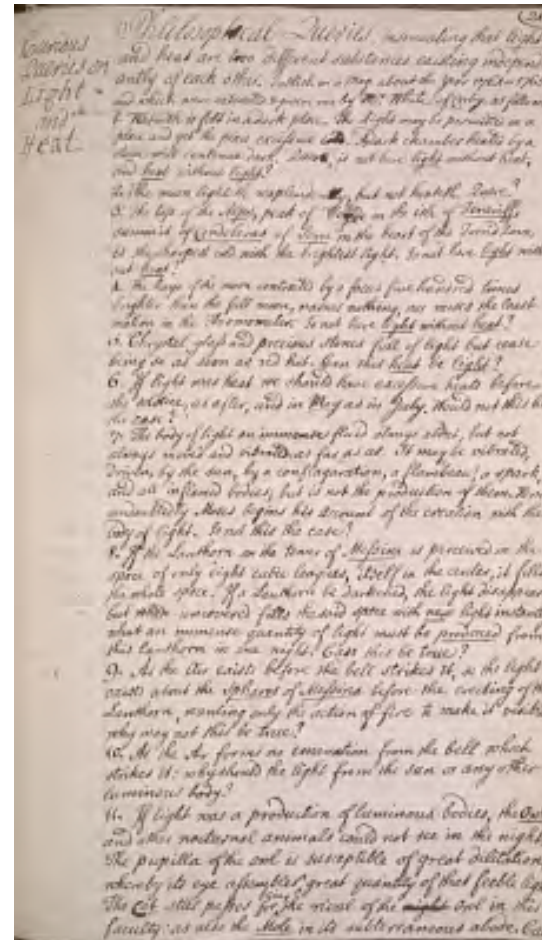 Curious
Queries on
Light
and
Heat
Philosophical Queries, insinuating that light
and heat are two different substances existing independ
antly of each other. in a Mag about the year
and which were by Mr White, of as follows
1 Warmth is felt in a dark place. The light may be in a
place and yet the place excessive cold. A dark chamber heated by a
will continue dark. is not here light without heat,
and heat without light?
2. The moon light , but not heateth ?
3. The top of the Alps, peak of in the isle of Teneriffe
summit of Cordileras of in the heart of the Torrid Zone,
is the sharpest cold with the brightest light. Is not here light with
out heat?
4. The Rays of the moon contracted by a focus five hundred times
brighter than the full moon, nothing, nor the least
motion in the Thermometer. Is not here light without heat?
5. Chrystal glass and precious stones full of light but cease
being so as soon as red hot. then this heat be light?
6. If light was heat we should have excessive heats before
the solstice, as after, and in May as in July. Would not this be
the case?
7. The body of light an immense fluid always exist, but not
always moved and vibrated as far as us. It may be vibrated,
driven, by the sun, by a conflagaration, a flambeau, a spark,
and all inflamed bodies, but is not the production of them.
Moses begins his account of the creation with the
body of light. Is not this the case?
8. If the Lanthorn in the tower of Messina is perceived in the
space of only eight cubic leagues, itself in the center, it fills
the whole space. If a Lanthorn be darkened, the light disappears
but when uncovered fills the said space with new light instant
what an immense quantity of light must be produced from
this lanthorn in one night. Can this be true?
9. As the Air exists before the bell strikes it, so the light
exists about the Spheres of Messina before the erecting of the
Lanthorn, wanting only the action of fire to make it visible
why may not this be true?
10. As the Air forms no emanation from the bell which
strikes it: why should the light from the sun or any other
luminous body?
11. If light was a production of luminous bodies, the Owl
and other nocturnal animals could not see in the night
The pupilla of the owl is susceptible of great dilitation
whereby its eye assembles great quantity of that feeble light
The Cat still passes for the rival of the night Owl in this
faculty: as also the Mole in its subterraneous abode.